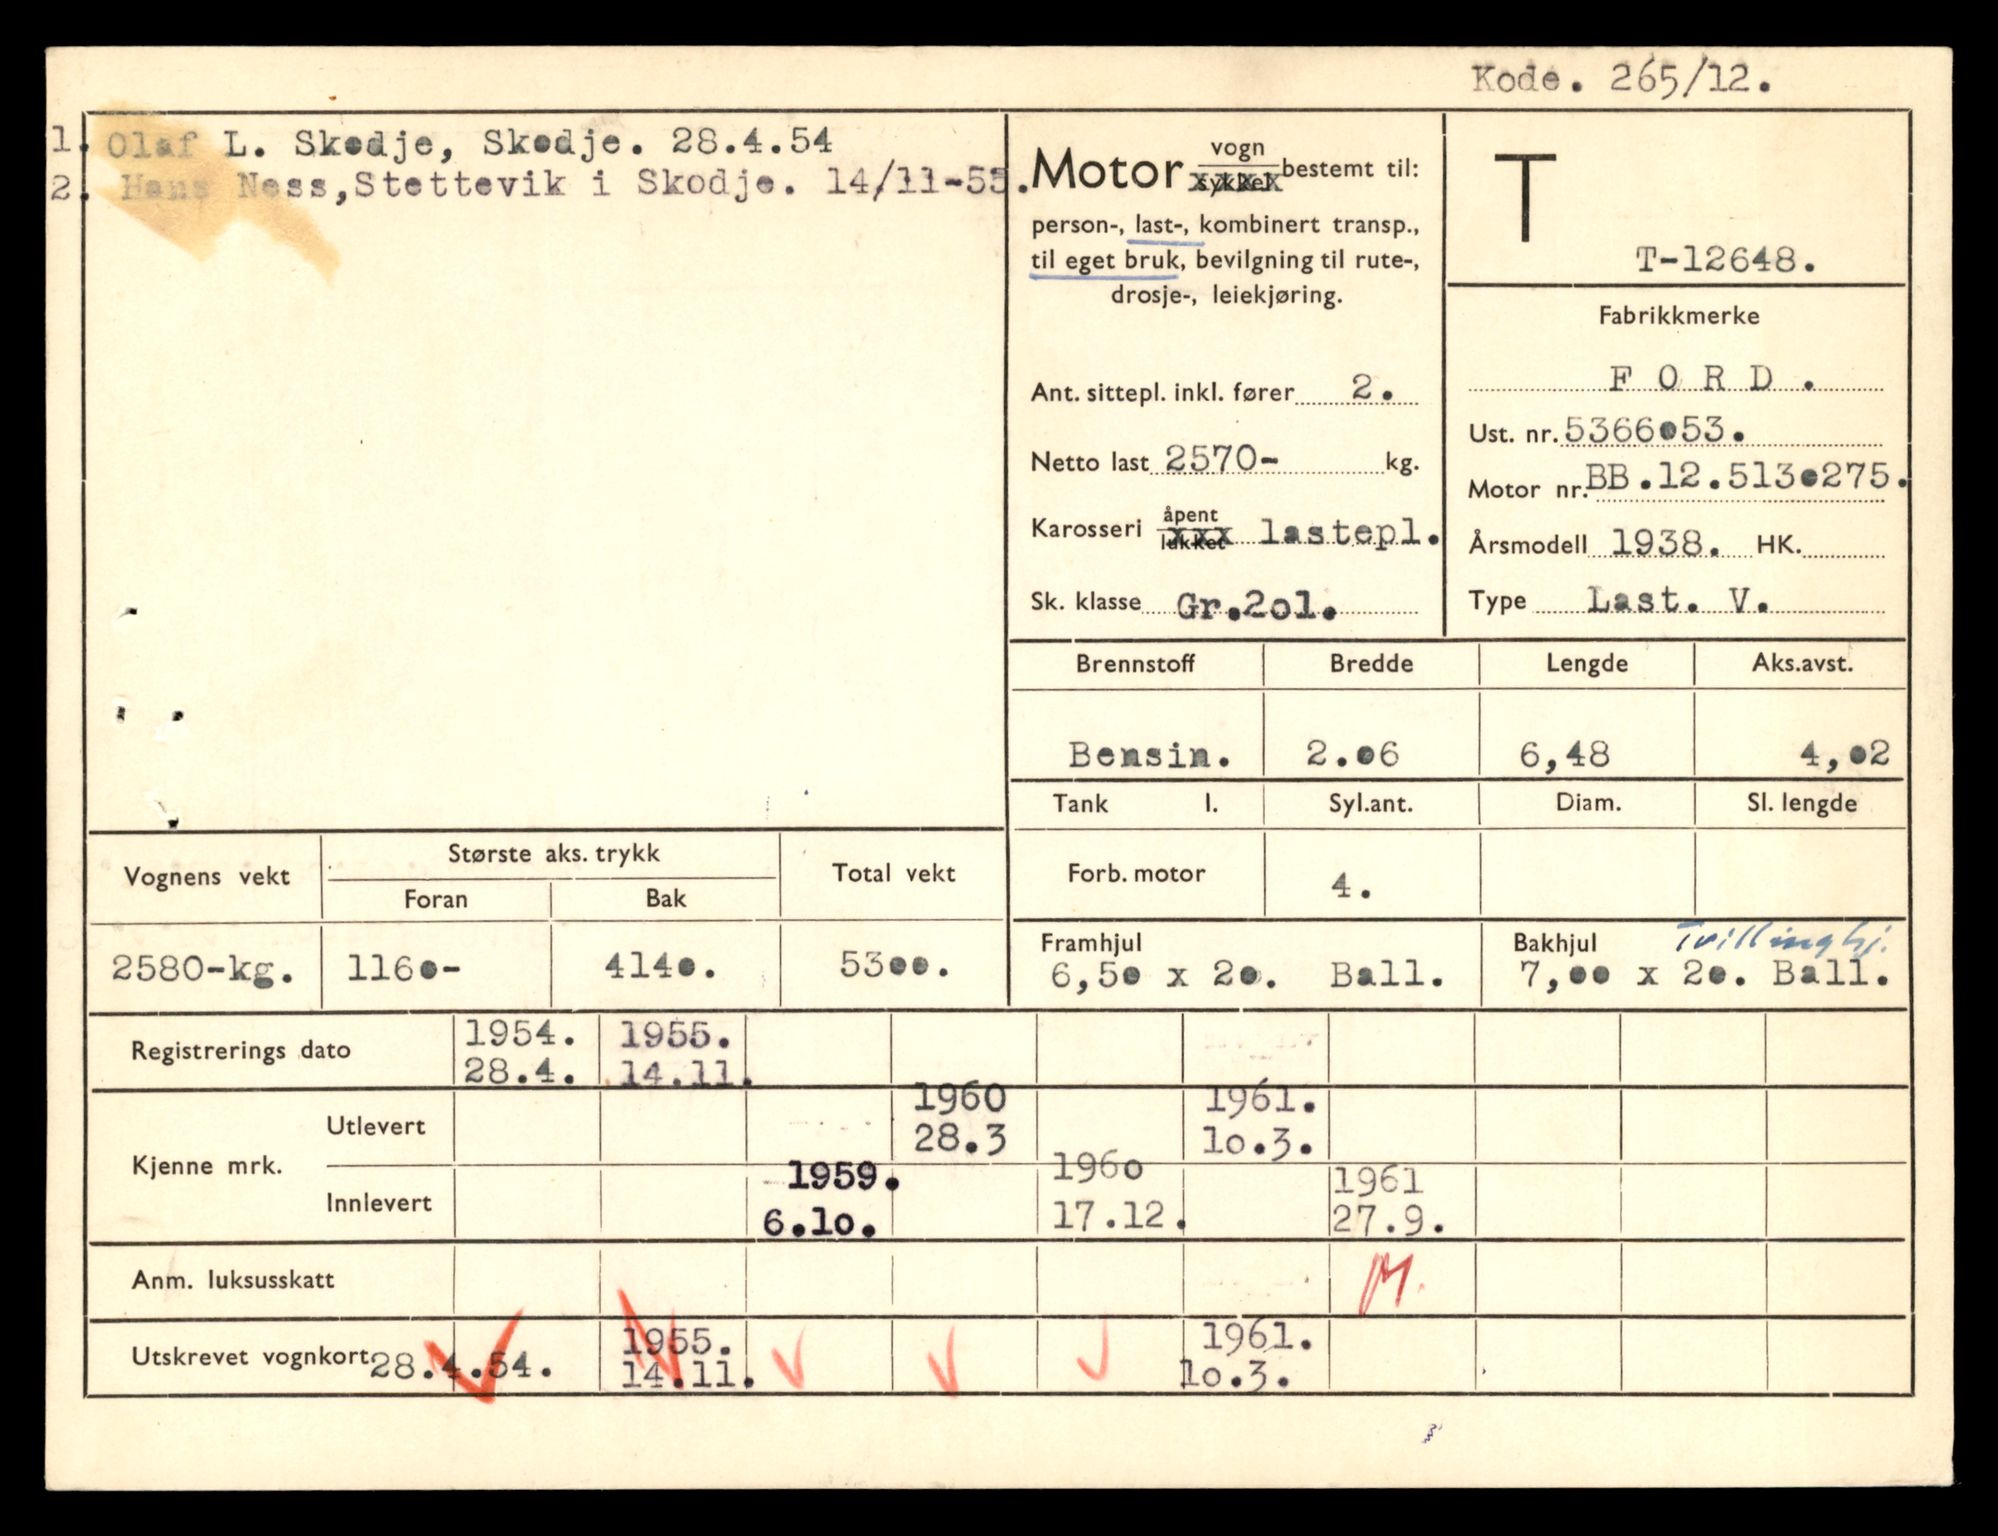 Kode. 265/12.
1. Olaf L. Skodje, Skodje. 28.4.54
2. Hans Ness, Stettevik i Skodje. 14/11-55.
Motor vogn sykkel bestemt til:
person-, last-, kombinert transp.,
til eget bruk, bevilgning til rute-,
drosje-, leiekjøring.
Ant. sittepl. inkl. fører 2.
Netto last 2570- kg.
Karosseri åpent lukket lastepl.
Sk. klasse Gr.2o1.
T
T-12648.
Fabrikkmerke
F O R D .
Ust. nr. 5366o53.
Motor nr. BB.12.513o275.
Årsmodell 1938. HK.
Type Last. V.
Brennstoff Bredde Lengde Aks.avst.
Bensin. 2.o6 6,48 4,o2
Tank l. Syl.ant. Diam. Sl. lengde
Forb. motor 4.
Framhjul
6,5o x 2o. Ball.
Bakhjul Tvillinghj.
7,oo x 2o. Ball.
Vognens vekt Største aks. trykk Total vekt
Foran Bak
2580-kg. 116o- 414o. 53oo.
Registrerings dato 1954. 1955.
28.4. 14.11.
Kjenne mrk.
Utlevert 1960 1961.
28.3 1o.3.
Innlevert 1959. 196o 1961
6.1o. 17.12. 27.9.
Anm. luksusskatt M.
Utskrevet vognkort 28.4.54. 1955. 1961.
14.11. 1o.3.